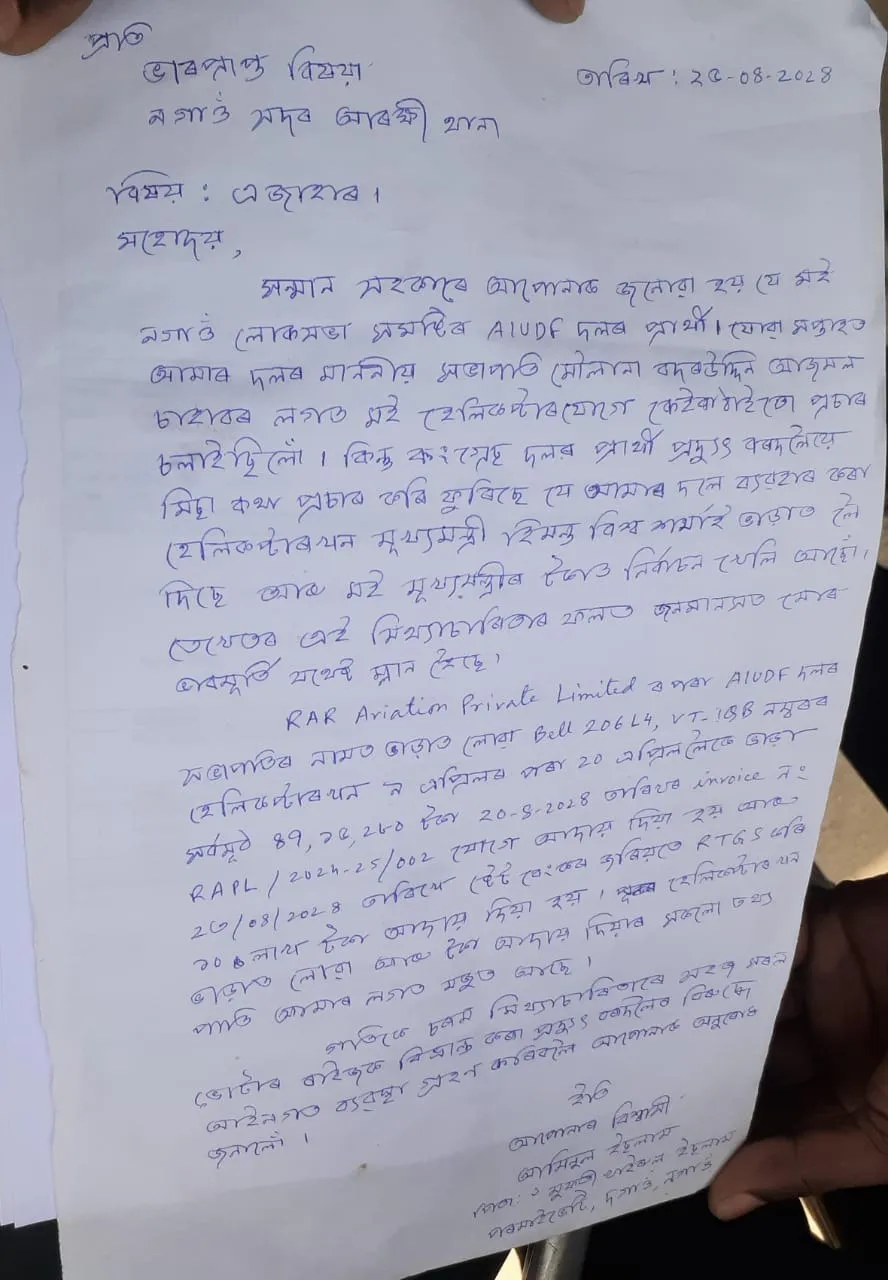 প্ৰতি
ভাৰপ্ৰাপ্ত বিষয়া
তাৰিখ : ২৫-০৪-২০২৪
নগাওঁ সদৰ আৰক্ষী থানা
বিষয় : এজাহাৰ।
মহোদয়,
সন্মান সহকাৰে আপোনাক জনোৱা হয় যে মই
নগাওঁ লোকসভা সমষ্টিৰ AIUDF দলৰ প্ৰাৰ্থী। যোৱা সপ্তাহত
আমাৰ দলৰ মাননীয় সভাপতি মৌলানা বদৰউদ্দিন আজমল
চাহাবৰ লগত মই হেলিকপ্টাৰযোগে কেইবাঠাইতো প্ৰচাৰ
চলাইছিলোঁ। কিন্তু কংগ্ৰেছ দলৰ প্ৰাৰ্থী প্ৰদ্যুৎ বৰদলৈয়ে
মিছা কথা প্ৰচাৰ কৰি ফুৰিছে যে আমাৰ দলে ব্যৱহাৰ কৰা
হেলিকপ্টাৰখন মূখ্যমন্ত্ৰী হিমন্ত বিশ্ব শৰ্মাই ভাড়াত লৈ
দিছে আৰু মই মূখ্যমন্ত্ৰীৰ টকাত নিৰ্বাচন খেলি আছোঁ।
তেখেতৰ এই মিথ্যাচাৰিতাৰ ফলত জনমানসত মোৰ
ভাৱমূৰ্তি যথেষ্ট ম্লান হৈছে।
RAR Aviation Private Limited ৰ পৰা AIUDF দলৰ
সভাপতিৰ নামত ভাড়াত লোৱা Bell 206L4, VT-১QB নম্বৰৰ
হেলিকপ্টাৰখন ৯ এপ্ৰিলৰ পৰা 20 এপ্ৰিললৈকে ভাড়া
সৰ্বমুঠ 49,১৫,২৮০ টকা 20-৪-২০২৪ তাৰিখৰ invoice নং
RAPL/2024-25/002 যোগে আদায় দিয়া হয় আৰু
২৩/০৪/২০২৪ তাৰিখে ষ্টেট বেংকৰ জৰিয়তে RTGS কৰি
১০ লাখ টকা আদায় দিয়া হয়। হেলিকপ্টাৰখন
ভাড়াত লোৱা আৰু টকা আদায় দিয়াৰ সকলো তথ্য
পাতি আমাৰ লগত মজুত আছে।
গতিকে চৰম মিথ্যাচাৰিতাৰে সহজ সৰল
ভোটাৰ ৰাইজক বিভ্ৰান্ত কৰা প্ৰদ্যুৎ বৰদলৈৰ বিৰুদ্ধে
আইনগত ব্যৱস্থা গ্ৰহণ কৰিবলৈ আপোনাক অনুৰোধ
জনালোঁ।
ইতি
আপোনাৰ বিশ্বাসী
আমিনুল ইছলাম
পিতা : মুফতী খাইৰুল ইছলাম
দগাওঁ, নগাওঁ